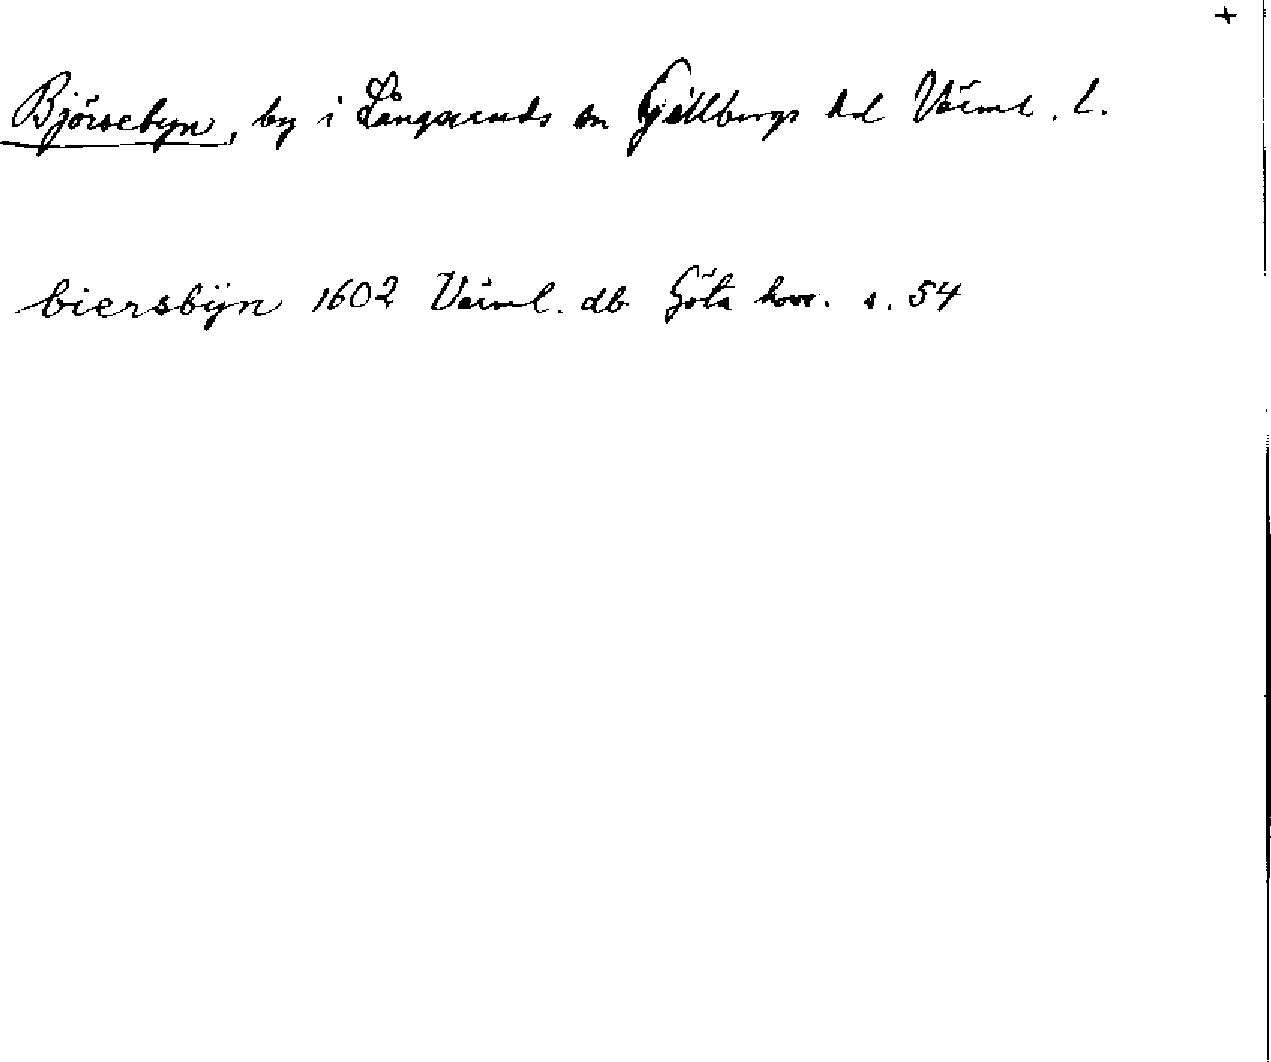 +
Björsebyn, by i Långseruds sn Gillbergs hd Värml. l.
biersbÿn 1602 Värml. db Göta hovr. s. 54